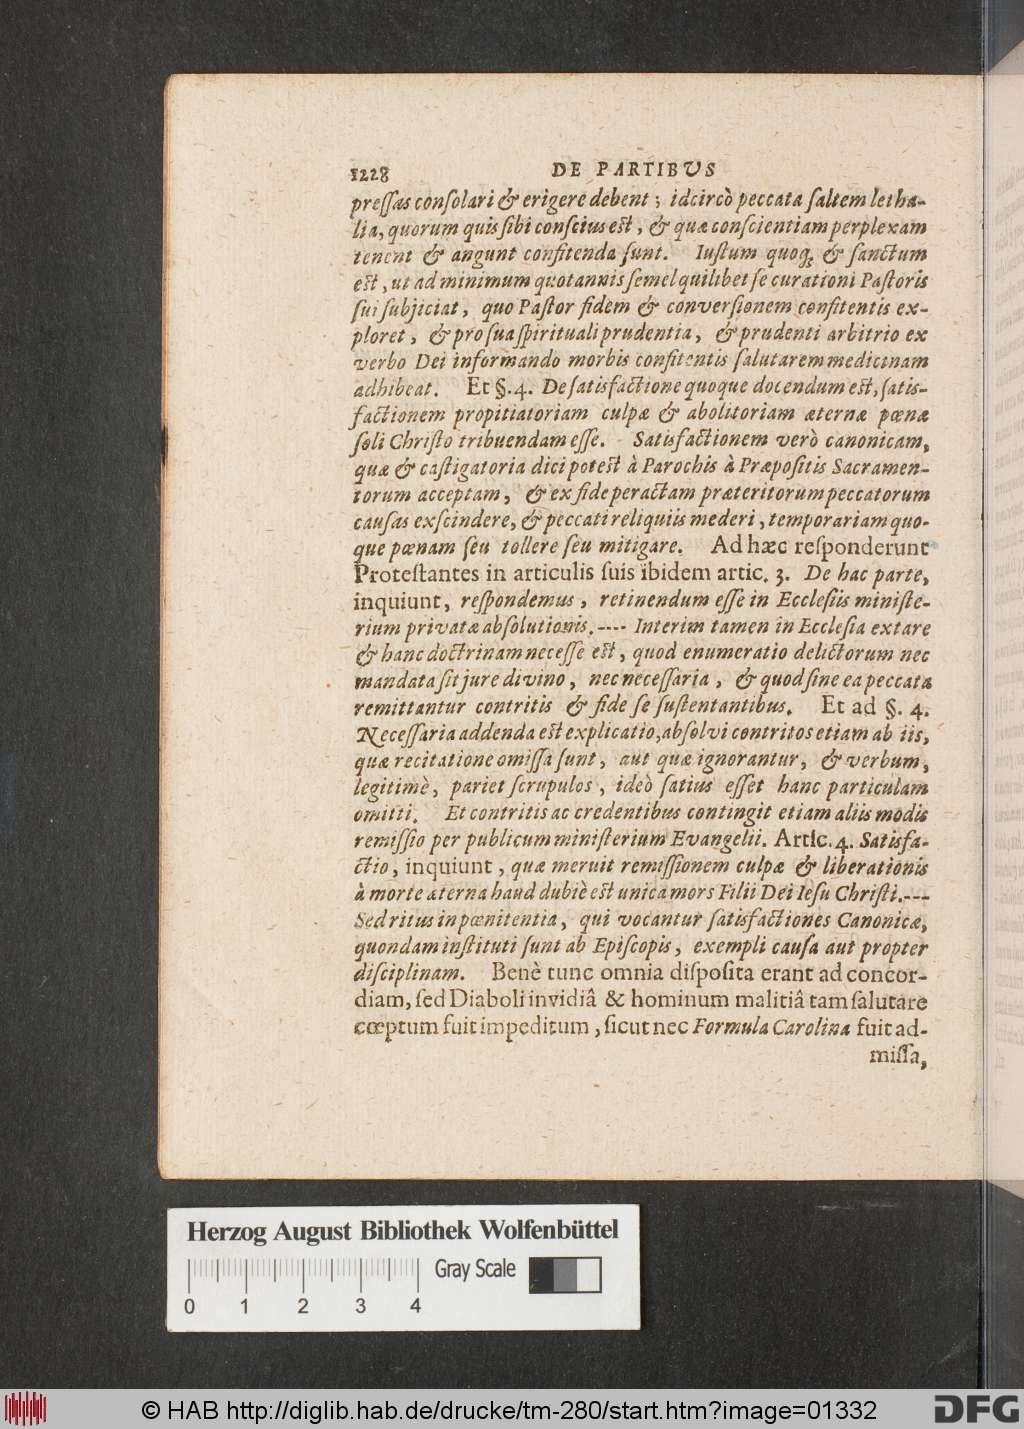 1228 DE PARTIBUS
preſſas conſolari & erigere debent; idcircò peccata ſaltem letha-
lia, quorum quis ſibi conſcius est, & quæ conſcientiam perplexam
tenent & angunt confitenda ſunt. Iuſtum quoq; & ſanctum
est, ut ad minimum quotannis ſemel quilibet ſe curationi Paſtoris
ſui ſubjiciat, quo Paſtor fidem & converſionem confitentis ex-
ploret, & pro ſua ſpirituali prudentia, & prudenti arbitrio ex
verbo Dei informando morbis confitentis ſalutarem medicinam
adhibeat. Et §. 4. De ſatisfactione quoque docendum est, ſatis-
factionem propitiatoriam culpæ & abolitoriam æternæ pœnæ
ſoli Chriſto tribuendam eſſe. Satisfactionem verò canonicam,
quæ & caſtigatoria dici potest à Parochis à Præpoſitis Sacramen-
torum acceptam, & ex fide peractam præteritorum peccatorum
cauſas exſcindere, & peccati reliquiis mederi, temporariam quo-
que pœnam ſeu tollere ſeu mitigare. Ad hæc reſponderunt
Proteſtantes in articulis ſuis ibidem artic. 3. De hac parte,
inquiunt, reſpondemus, retinendum eſſe in Eccleſiis miniſte-
rium privatæ abſolutionis. ---- Interim tamen in Eccleſia extare
& hanc doctrinam neceſſe est, quod enumeratio delictorum nec
mandata ſit jure divino, nec neceſſaria, & quod ſine ea peccata
remittantur contritis & fide ſe ſuſtentantibus. Et ad §. 4.
Neceſſaria addenda est explicatio, abſolvi contritos etiam ab iis,
quæ recitatione omiſſa ſunt, aut quæ ignorantur, & verbum,
legitimè, pariet ſcrupulos, ideò ſatius eſſet hanc particulam
omitti. Et contritis ac credentibus contingit etiam aliis modis
remiſſio per publicum miniſterium Evangelii. Artic. 4. Satisfa-
ctio, inquiunt, quæ meruit remiſſionem culpæ & liberationis
à morte æterna haud dubiè est unica mors Filii Dei Ieſu Chriſti. ---
Sed ritus in pœnitentia, qui vocantur ſatisfactiones Canonicæ,
quondam inſtituti ſunt ab Epiſcopis, exempli cauſa aut propter
diſciplinam. Benè tunc omnia diſpoſita erant ad concor-
diam, ſed Diaboli invidiâ & hominum malitiâ tam ſalutare
cœptum fuit impeditum, ſicut nec Formula Carolina fuit ad-
miſſa,
Herzog August Bibliothek Wolfenbüttel
Gray Scale
0 1 2 3 4
© HAB http://diglib.hab.de/drucke/tm-280/start.htm?image=01332
DFG